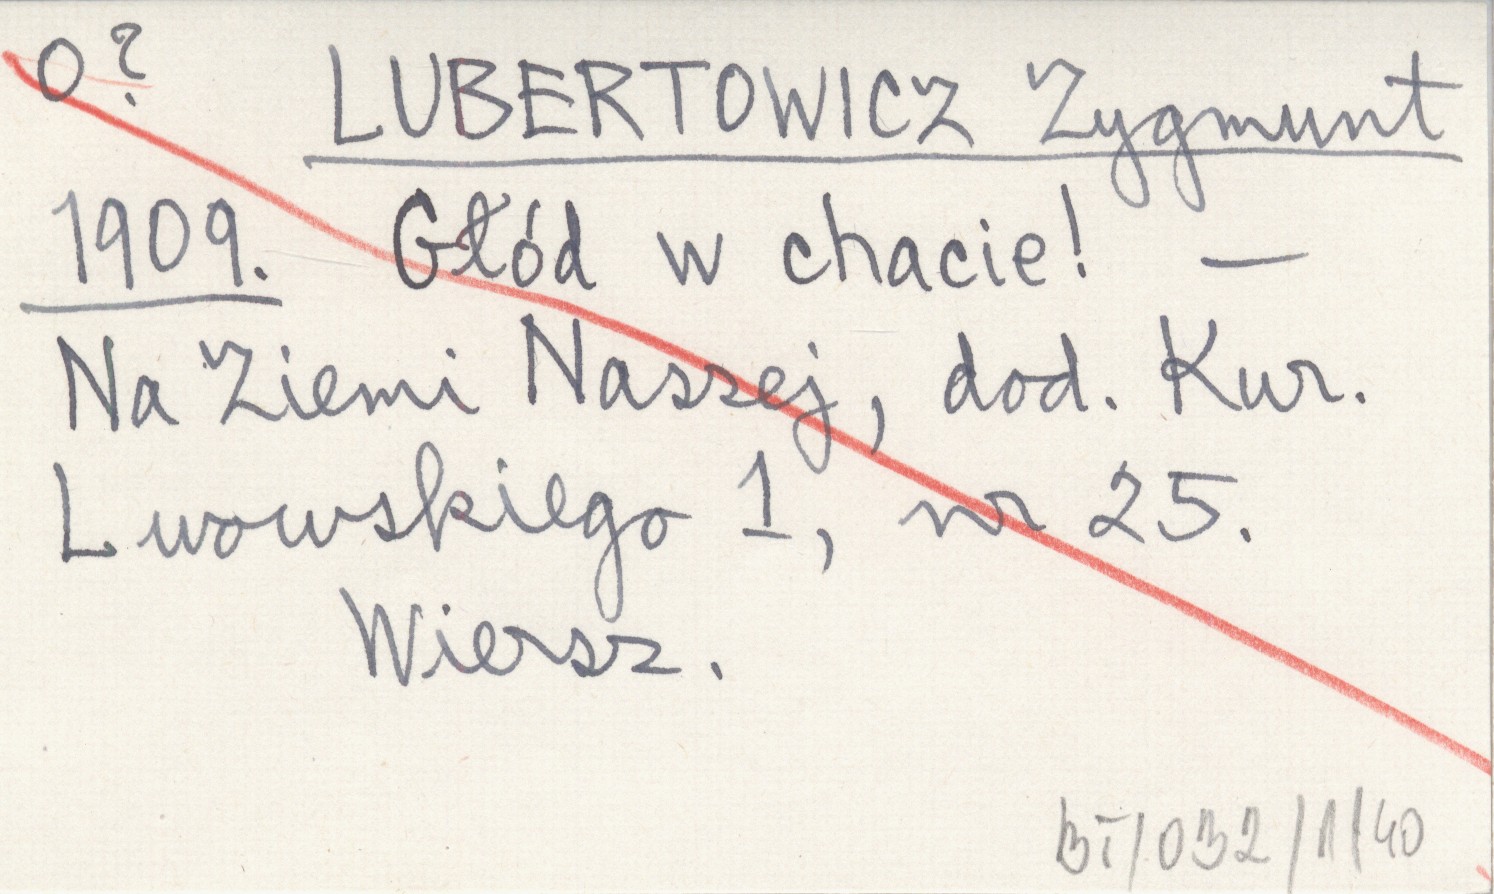 O? LUBERTOWICZ Zygmunt
1909. Głód w chacie! —
Na Ziemi Naszej, dod. Kur.
Lwowskiego 1, nr 25.
Wiersz.
BT/032/1/40